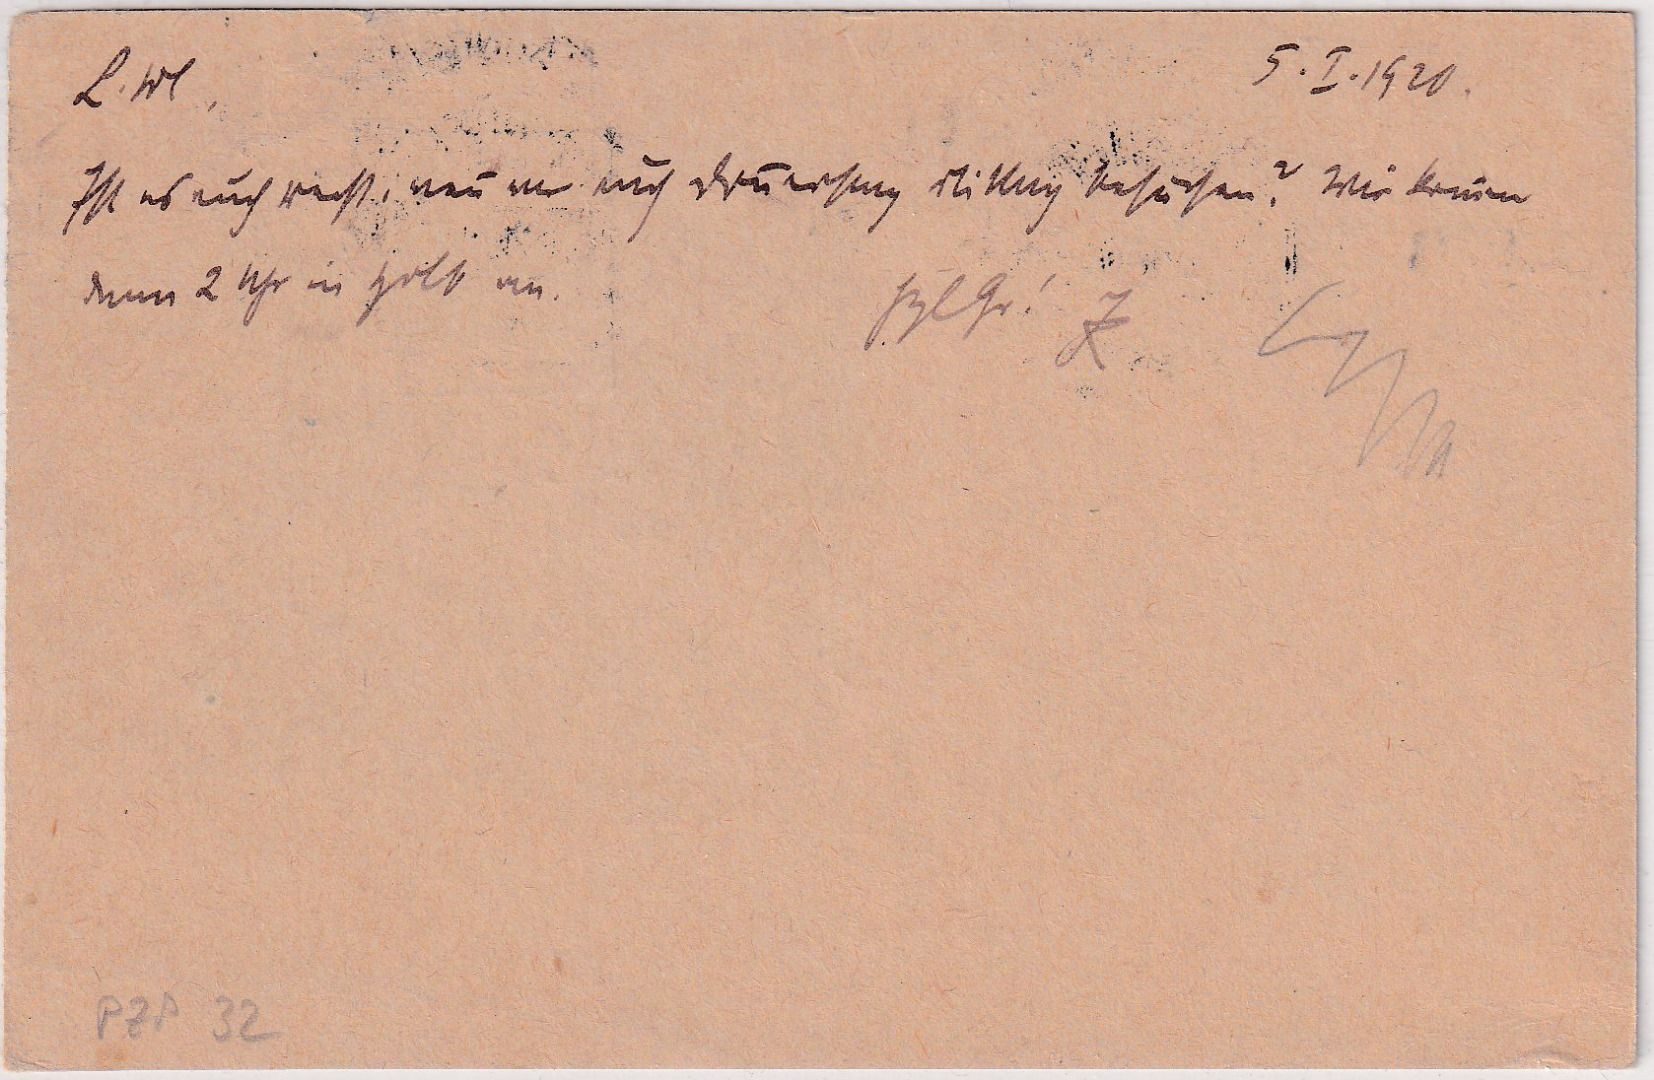 L. W., 5.I.1920.
Ist es euch recht, wenn wir euch Donnerstag Mittag besuchen? Wir kommen
dann 2 Uhr in an.
Hzl Gr! F
PZP 32